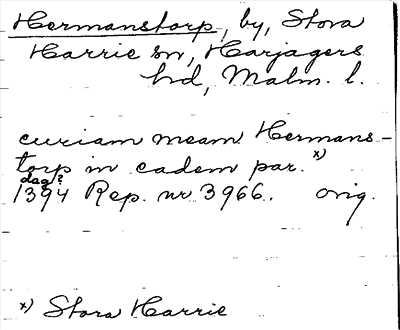 Hermanstorp, by, Stora
Harrie sn, Harjagers
hd, Malm. l.
curiam meam Hermans-
torp in eadem par. x)
dag?
1394 Rep. nr 3966. orig.
x) Stora Harrie